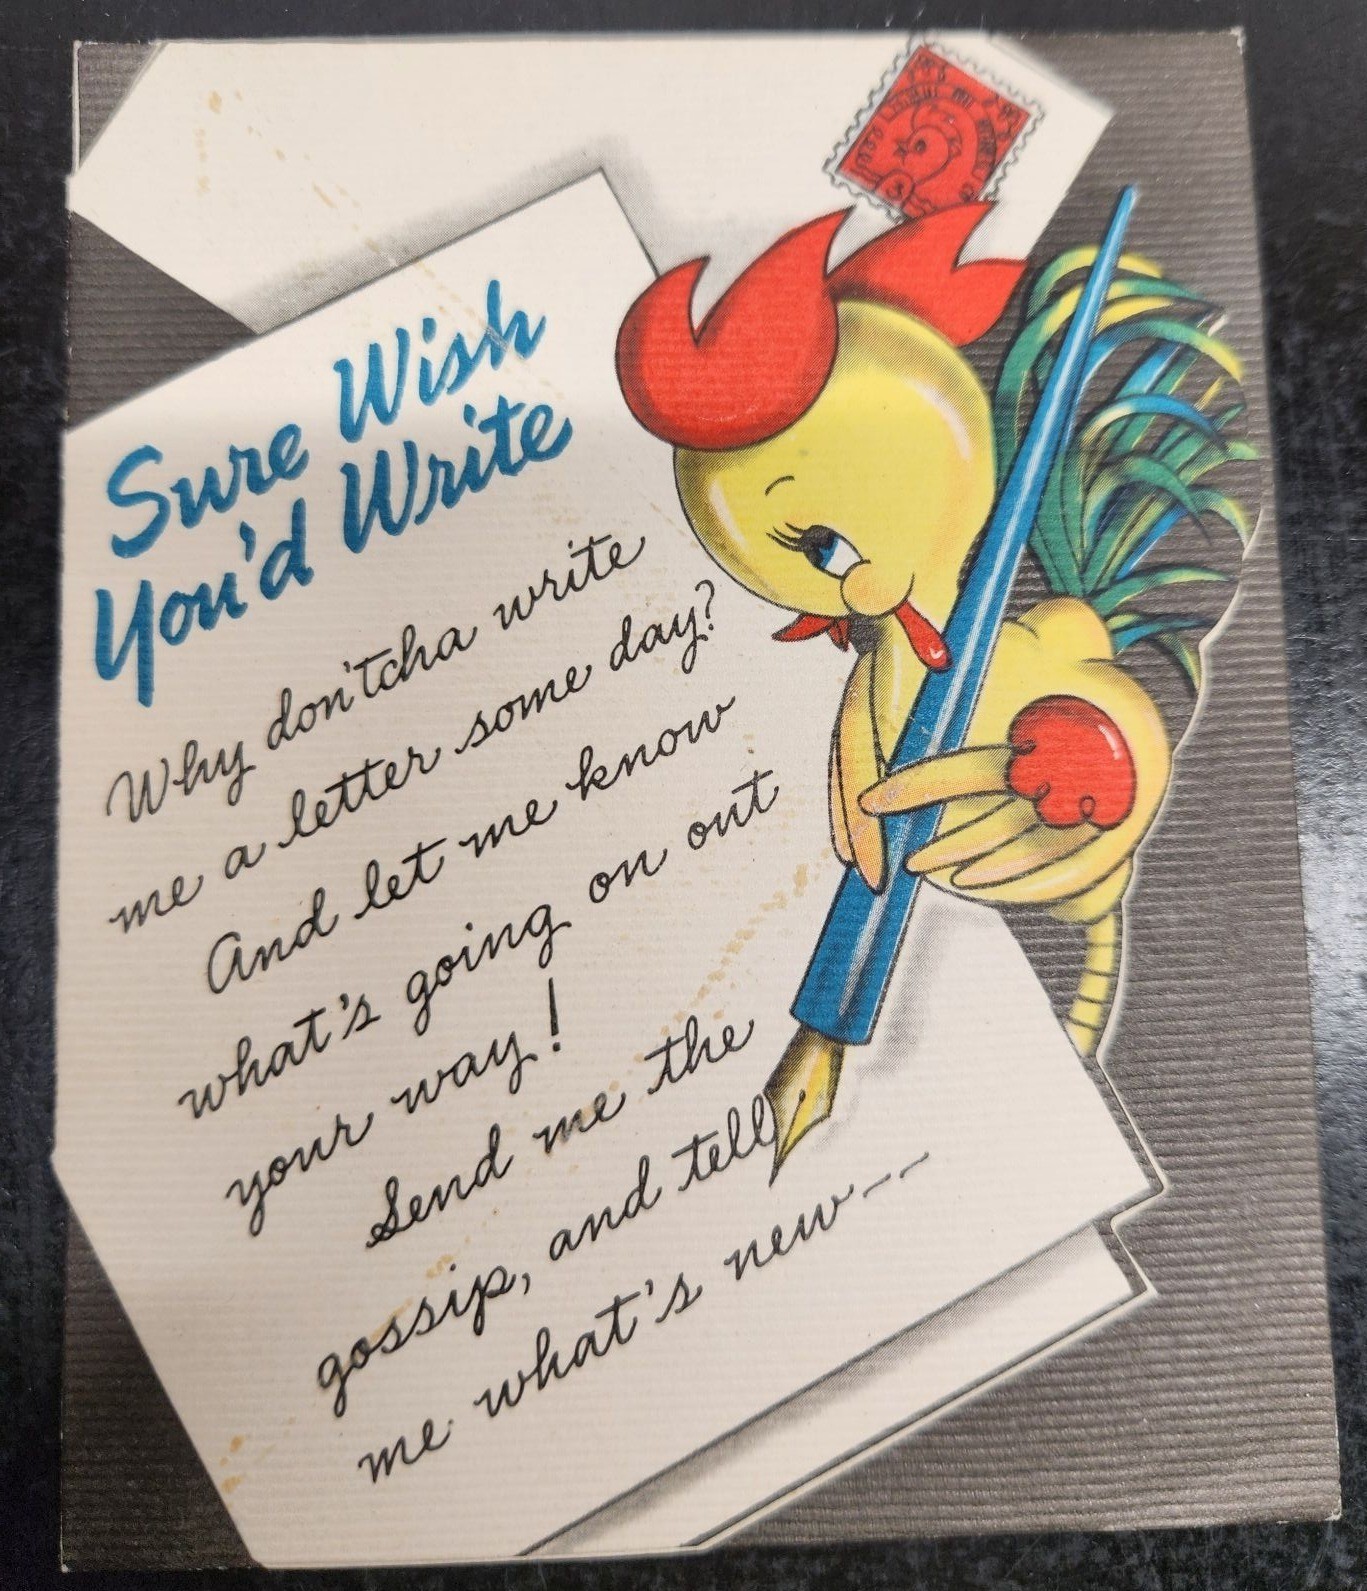 Sure Wish
You'd Write
Why don'tcha write
me a letter some day?
And let me know
what's going on out
your way!
Send me the
gossip, and tell
me what's new--